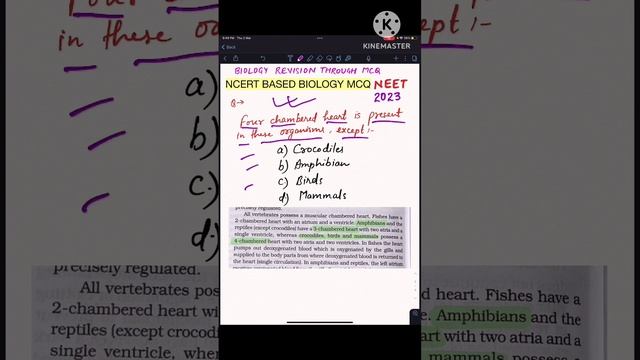 KINEMASTER
Back
BIOLOGY REVISION THROUGH MCQ
NCERT BASED BIOLOGY MCQ NEET
2023
Q →
Four chambered heart is present
in these organisms, except :-
a) Crocodiles
b) Amphibian
c) Birds
d) Mammals
precisely regulated.
All vertebrates possess a muscular chambered heart. Fishes have a
2-chambered heart with an atrium and a ventricle. Amphibians and the
reptiles (except crocodiles) have a 3-chambered heart with two atria and a
single ventricle, whereas crocodiles, birds and mammals possess a
4-chambered heart with two atria and two ventricles. In fishes the heart
pumps out deoxygenated blood which is oxygenated by the gills and
supplied to the body parts from where deoxygenated blood is returned to
the heart (single circulation). In amphibians and reptiles, the left atrium
in these
except :-
a)
b)
c)
d)
precisely regulated.
All vertebrates pos
d heart. Fishes have a
2-chambered heart wi
e. Amphibians and the
reptiles (except crocodi
art with two atria and a
single ventricle, wher
mammals possess a